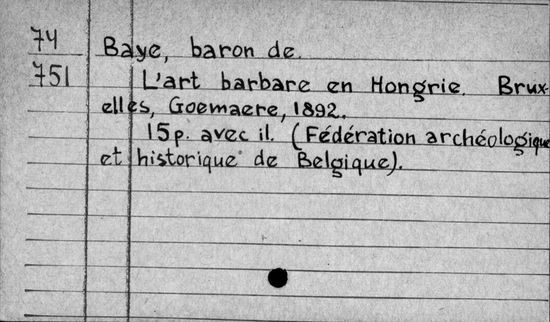 74 Baye, baron de.
751 L'art barbare en Hongrie. Brux-
elles, Goemaere, 1892.
15p. avec il. (Fédération archéologique
et historique de Belgique).